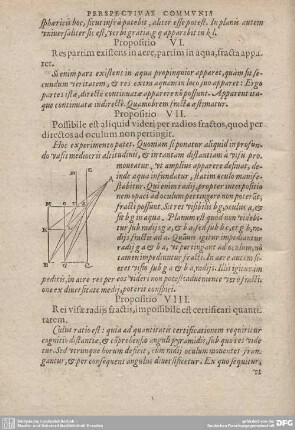 PERSPECTIVAE COMMVNIS
sphæricis hoc, sicut infrà patebit, aliter esse potest. In planis autem
uniuersaliter sic est, verbi gratia g apparebit in k l.
Propositio VI.
Res partim existens in aere, partim in aqua, fracta appa-
ret.
Si enim pars existens in aqua propinquior apparet, quàm sit se-
cundum veritatem, & res extra aquam in loco suo apparet: Ergo
partes istæ, directè continuatæ apparere non possunt. Apparent ita-
que continuatæ indirectè. Quamobrem fracta æstimatur.
Propositio VII.
Possibile est aliquid videri per radios fractos, quod per
directos ad oculum non pertingit.
Hoc experimento patet. Quoniam si ponatur aliquid in profun-
do vasis mediocris altitudinis, & in tantum distantiam à visu pro-
moueatur, ut amplius apparere desinat, dein-
de aqua infundatur, statim oculo manife-
stabitur. Qui enim radij, propter interpositio-
nem opaci ad oculum pertingere non poterāt,
fracti possunt. Sit res visibilis b g, oculus a, &
sit b g in aqua. Planum est quòd non videbi-
tur sub
peditis, in aere res per eos videri non potest
one ex diuersitate medij, poterit conspici.
Propositio VIII.
Rei visæ radijs fractis, impossibile est certificari quanti-
tatem.
Cuius ratio est: quia ad quantitatis certificationem requiritur
cognitio distantiæ, & comprehensio anguli pyramidis, sub quo res vide-
tur. Sed utrunque horum desicit, cum radij oculum mouentes fran-
gantur, & per consequens angulus diuersificetur. Ex quo sequitur,